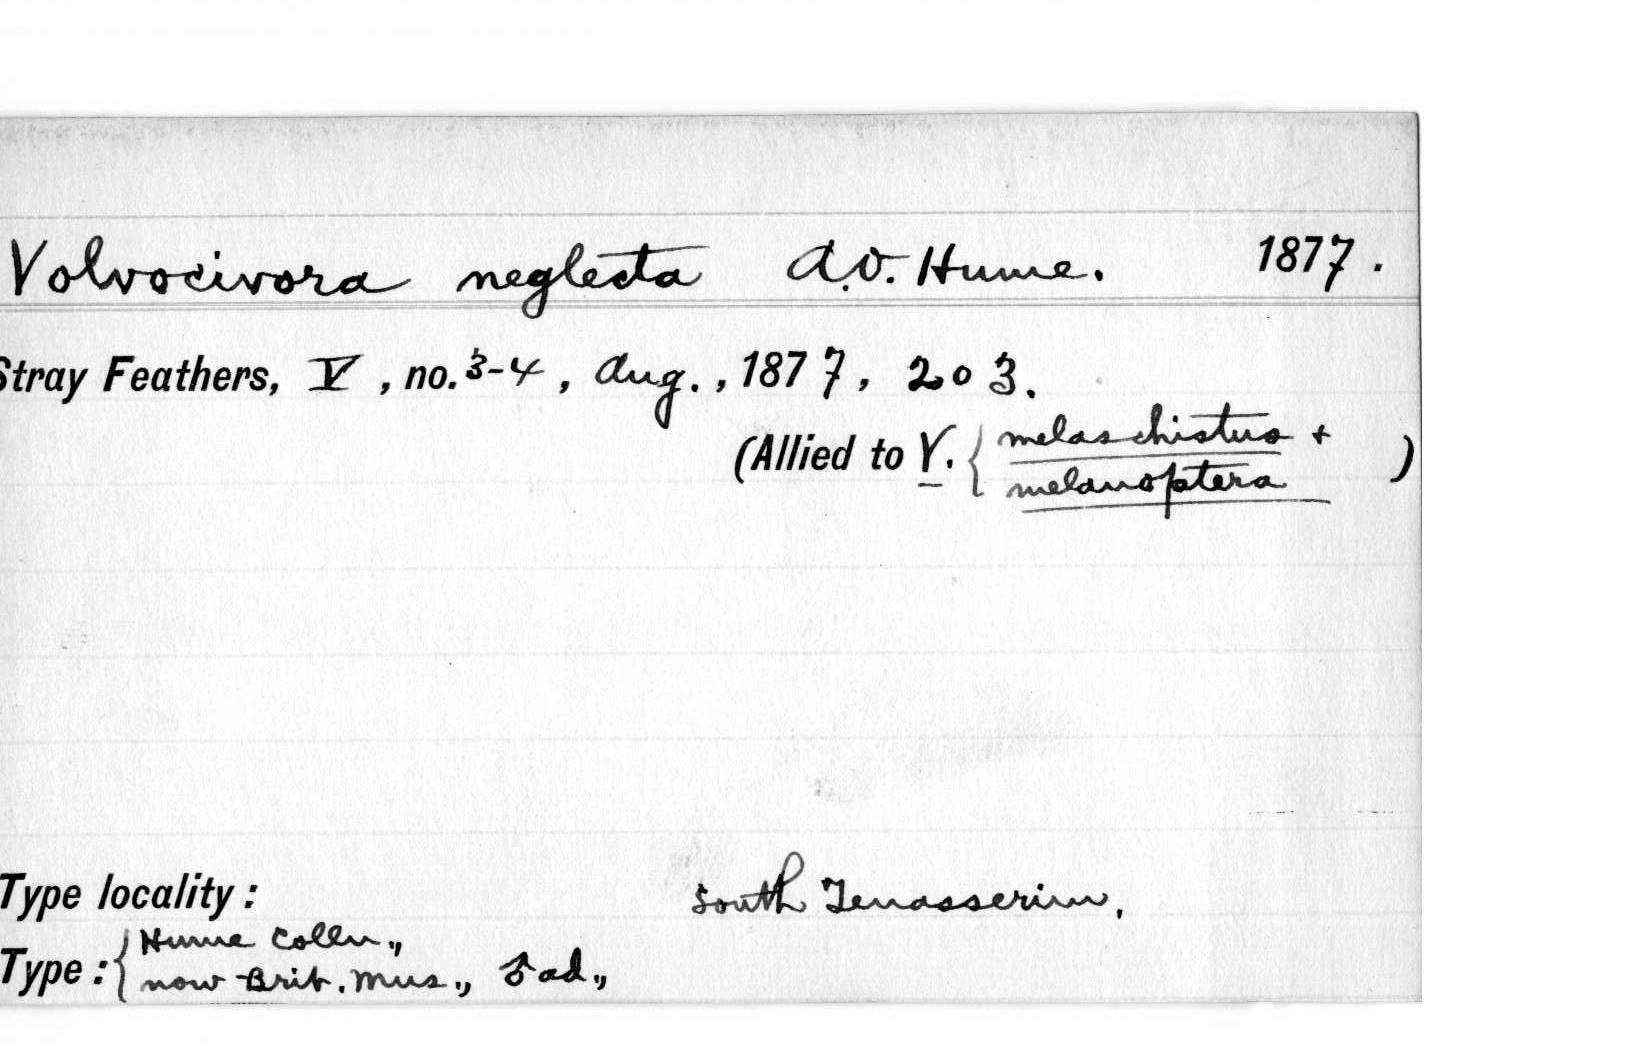 Volvocivora neglecta A.O. Hume. 1877.
Stray Feathers, V, no. 3-4, Aug., 1877, 203.
(Allied to V. { melaschistus +
melanoptera )
Type locality: South Tenasserim,
Type: { Hume Colln.,
now Brit. Mus., ♂ ad.,